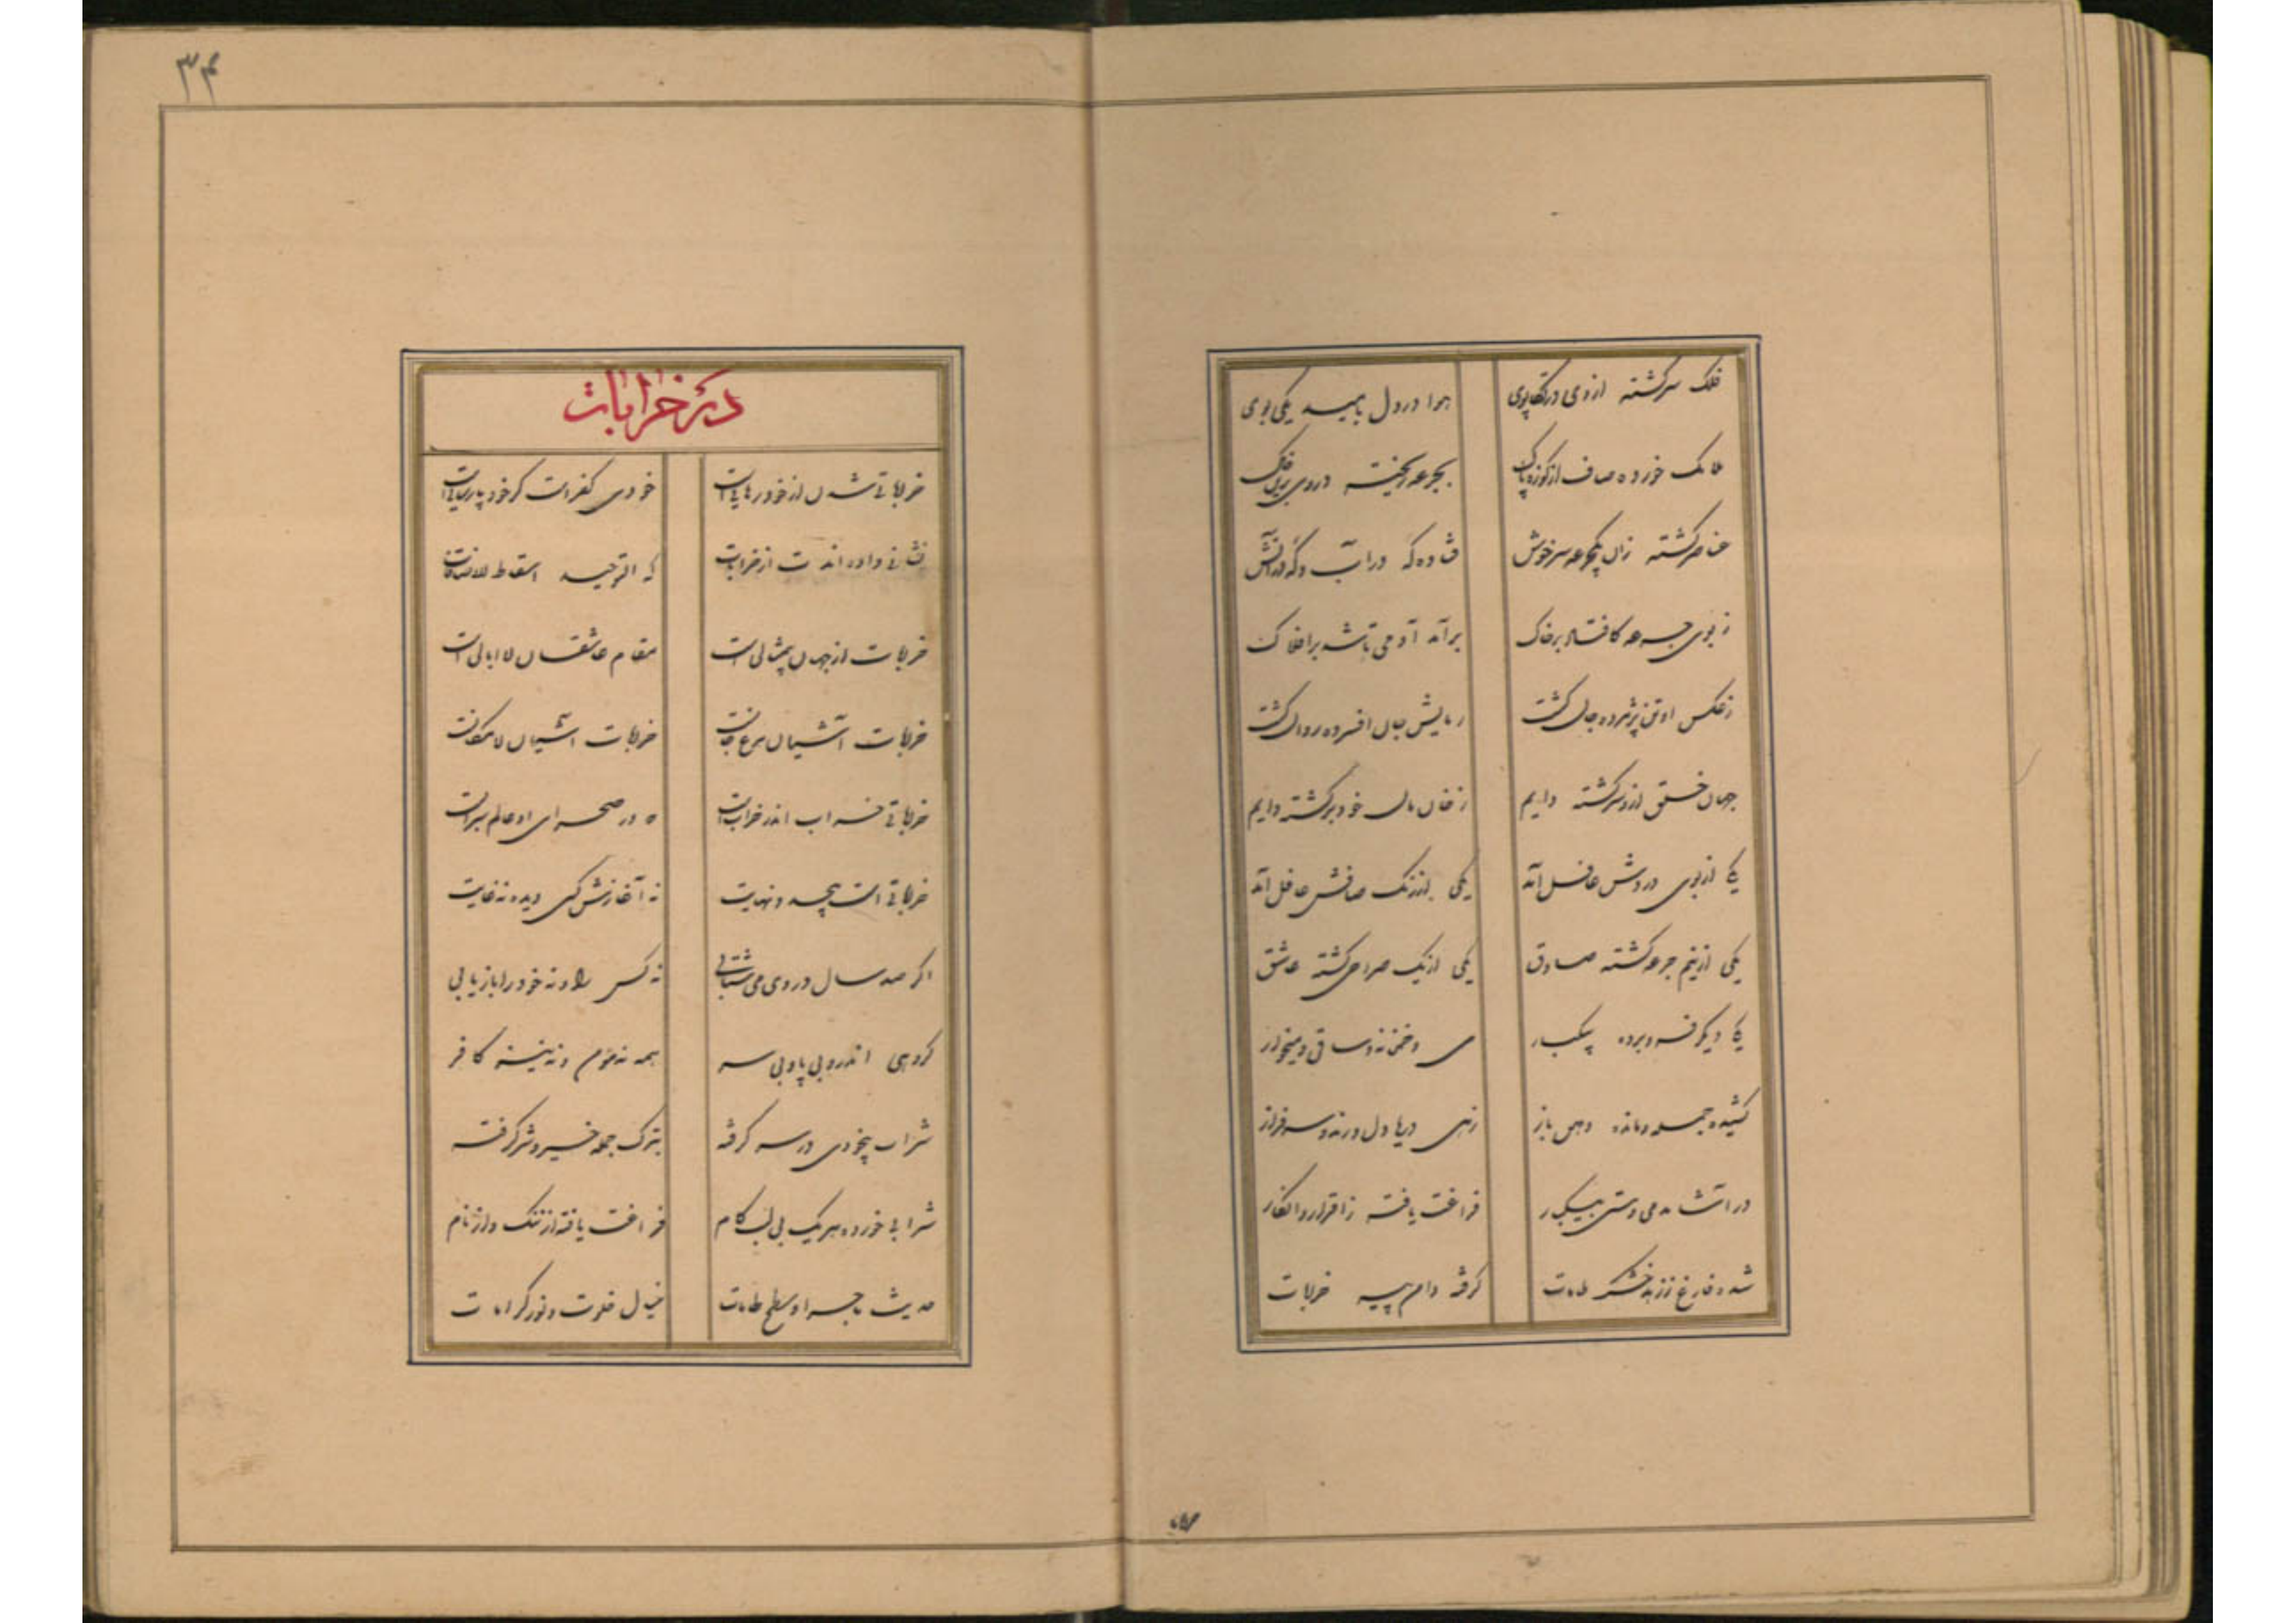 فلک سرکشته ازوی درتکاپوی هوا در دل بامید یکی بوی
ملایک خورده صاف از کوزه پاک بجرعه ریخته دردی برین خاک
عناصر کشته زان یکجرعه سرخوش فتاده که در آب و که در آتش
ز بوی جرعه کافتاد بر خاک برآمد آدمی تا شد بر افلاک
زعکس او تن پژمرده جان کشت جان افسرده روان کشت
جهان خلق ازو سرکشته دایم زخان مان خود برکشته دایم
یکی از بوی دردش عاقل آمد یکی از رنک صافش عاقل آمد
یکی از نیم جرعه کشته صادق یکی از یک صراحی کشته عاشق
یکی دیکر فرو برده بیکبار می و خمخانه و ساقی و میخوار
کشیده جمله و مانده دهن باز زهی دریا دل و رند سرفراز
بیکبار فراغت یافته ز اقرار و انکار
شده فارغ ز زهد خشک طامات کرفته دامن پیر خرابات
۳۴
در خرابات
خراباتی شدن از خود رهایی است خودی کفر است کر خود پارسایی است
نشانی داده اندت از خرابات که التوحید اسقاط الاضافات
خرابات از جهان بیمثالی است مقام عاشقان لاابالی است
خرابات آشیان مرغ جانست خرابات آشیان لامکانست
خراباتی خراب اندر خراب است که در صحرای او عالم سراب است
خراباتی است بیحد و نهایت نه آغازش کسی دیده نه غایت
اکر صد سال در وی می شتابی نه کس را و نه خود را بازیابی
کروهی اندرو بی پا و بی سر همه نه مؤمن و نه نیز کافر
شراب بیخودی در سر کرفته بترک جمله خیر و شر کرفته
شرابی خورده هر یک بی لب کام فراغت یافته از ننک و از نام
حدیث ماجرا و شطح طامات خیال خلوت و نور کرامات